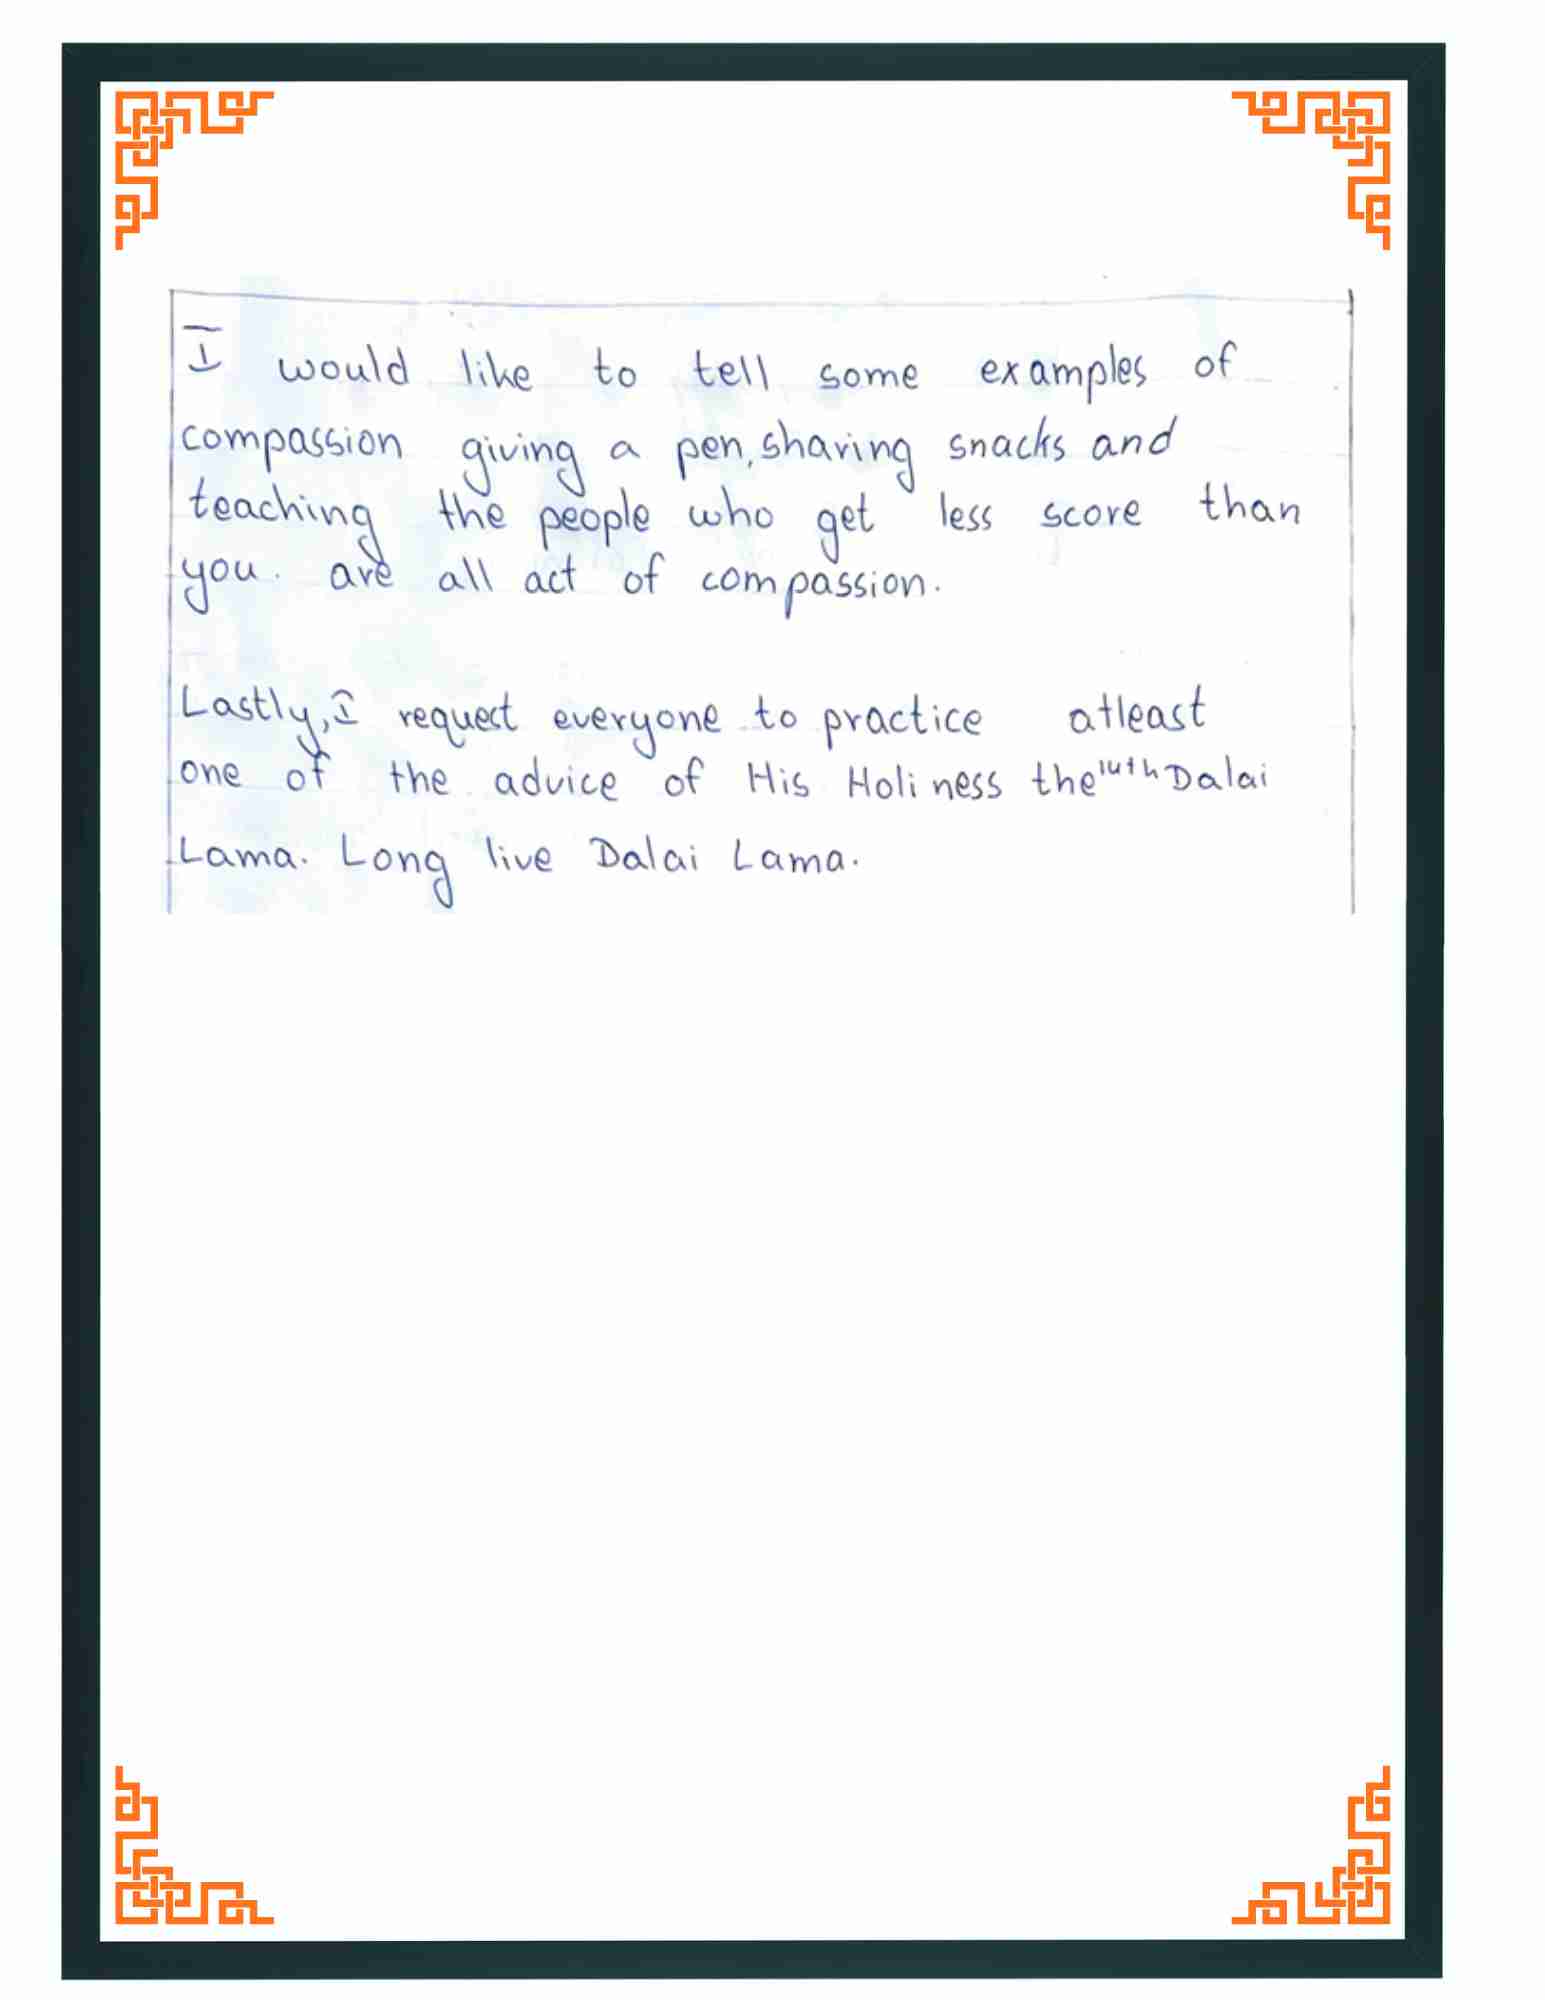 I would like to tell some examples of
compassion giving a pen, sharing snacks and
teaching the people who get less score than
you. are all act of compassion.
Lastly, I request everyone to practice atleast
one of the advice of His Holiness the 14th Dalai
Lama. Long live Dalai Lama.